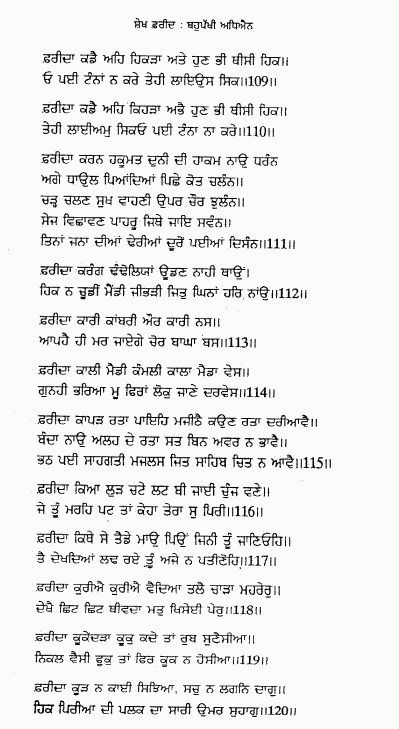 ਸ਼ੇਖ਼ ਫ਼ਰੀਦ : ਬਹੁਪੱਖੀ ਅਧਿਐਨ
ਫ਼ਰੀਦਾ ਕਡੈ ਅਹਿ ਹਿਕੜਾ ਅਤੇ ਹੁਣ ਭੀ ਥੀਸੀ ਹਿਕ।।
ਓ ਪਈ ਟੰਨਾਂ ਨ ਕਰੇ ਤੇਹੀ ਲਾਇਉਸ ਸਿਕ।।109।।
ਫ਼ਰੀਦਾ ਕਡੈ ਅਹਿ ਕਿਹੜਾ ਅਭੈ ਹੁਣ ਭੀ ਥੀਸੀ ਹਿਕ।।
ਤੇਹੀ ਲਾਈਅਮੁ ਸਿਕਓ ਪਈ ਟੰਨਾ ਨਾ ਕਰੇ।।110।।
ਫ਼ਰੀਦਾ ਕਰਨ ਹਕੂਮਤ ਦੁਨੀ ਦੀ ਹਾਕਮ ਨਾਉ ਧਰੰਨ
ਅਗੇ ਧਾਉਲ ਪਿਆਂਦਿਆਂ ਪਿਛੇ ਕੋਤ ਚਲੰਨ।।
ਚੜ੍ਹ ਚਲਣ ਸੁਖ ਵਾਹਣੀ ਉਪਰ ਚੌਰ ਝੁਲੰਨ।।
ਸੇਜ ਵਿਛਾਵਣ ਪਾਹਰੂ ਜਿਥੇ ਜਾਇ ਸਵੰਨ।।
ਤਿਨਾਂ ਜਨਾ ਦੀਆਂ ਢੇਰੀਆਂ ਦੂਰੋਂ ਪਈਆਂ ਦਿਸੰਨ।।111।।
ਫ਼ਰੀਦਾ ਕਰੰਗ ਢੰਢੋਲਿਯਾਂ ਊਡਣ ਨਾਹੀ ਥਾਉਂ।
ਹਿਕ ਨ ਚੂਡੀਂ ਮੈਂਡੀ ਜੀਭੜੀ ਜਿਤੁ ਘਿਨਾਂ ਹਰਿ ਨਾਂਉ।।112।।
ਫ਼ਰੀਦਾ ਕਾਰੀ ਕਾਂਬਰੀ ਔਰ ਕਾਰੀ ਨਸ।।
ਆਪਹੈ ਹੀ ਮਰ ਜਾਏਗੇ ਚੋਰ ਬਾਘਾ ਬਸ।।113।।
ਫ਼ਰੀਦਾ ਕਾਲੀ ਮੈਡੀ ਕੰਮਲੀ ਕਾਲਾ ਮੈਡਾ ਵੇਸ।।
ਗੁਨਹੀ ਭਰਿਆ ਮੂ ਫਿਰਾਂ ਲੋਕੁ ਜਾਣੇ ਦਰਵੇਸ।।114।।
ਫ਼ਰੀਦਾ ਕਾਪੜ ਰਤਾ ਪਾਇਹਿ ਮਜੀਠੈ ਕਉਣ ਰਤਾ ਦਰੀਆਵੈ।।
ਬੰਦਾ ਨਾਉ ਅਲਹ ਦੇ ਰਤਾ ਸਤ ਬਿਨ ਅਵਰ ਨ ਭਾਵੈ।।
ਭਠ ਪਈ ਸਾਹਗਤੀ ਮਜਲਸ ਜਿਤ ਸਾਹਿਬ ਚਿਤ ਨ ਆਵੈ।।115।।
ਫ਼ਰੀਦਾ ਕਿਆ ਲੁੜ ਚਟੇ ਲਟ ਬੀ ਜਾਈ ਚੁੰਜ ਵਣੇ।।
ਜੇ ਤੂੰ ਮਰਹਿ ਪਟ ਤਾਂ ਕੇਹਾ ਤੇਰਾ ਸੁ ਪਿਰੀ।।116।।
ਫ਼ਰੀਦਾ ਕਿਥੇ ਸੇ ਤੈਡੇ ਮਾਉ ਪਿਉਂ ਜਿਨੀ ਤੂੰ ਜਾਣਿਓਹਿ।।
ਤੈ ਦੇਖਦਿਆਂ ਲਢ ਰਏ ਤੂੰ ਅਜੇ ਨ ਪਤੀਣੋਹਿ।।117।।
ਫ਼ਰੀਦਾ ਕੁਰੀਐ ਕੁਰੀਐ ਵੈਦਿਆ ਤਲੋ ਚਾੜਾ ਮਹਰੇਰੁ।।
ਦੇਖੈ ਛਿਟ ਛਿਟ ਥੀਵਦਾ ਮਤੁ ਖਿਸੇਈ ਪੇਰੁ।।118।।
ਫ਼ਰੀਦਾ ਕੂਕੇਂਦੜਾ ਕੂਕੁ ਕਦੇ ਤਾਂ ਰੁਬ ਸੁਣੈਸੀਆ।।
ਨਿਕਲ ਵੈਸੀ ਫੂਕੁ ਤਾਂ ਫਿਰ ਕੂਕ ਨ ਹੋਸੀਆ।।119।।
ਫ਼ਰੀਦਾ ਕੂੜ ਨ ਕਾਈ ਸਿਝਿਆ, ਸਚੁ ਨ ਲਗਨਿ ਦਾਗੁ।।
ਹਿਕ ਪਿਰੀਆ ਦੀ ਪਲਕ ਦਾ ਸਾਰੀ ਉਮਰ ਸੁਹਾਗੁ।।120।।